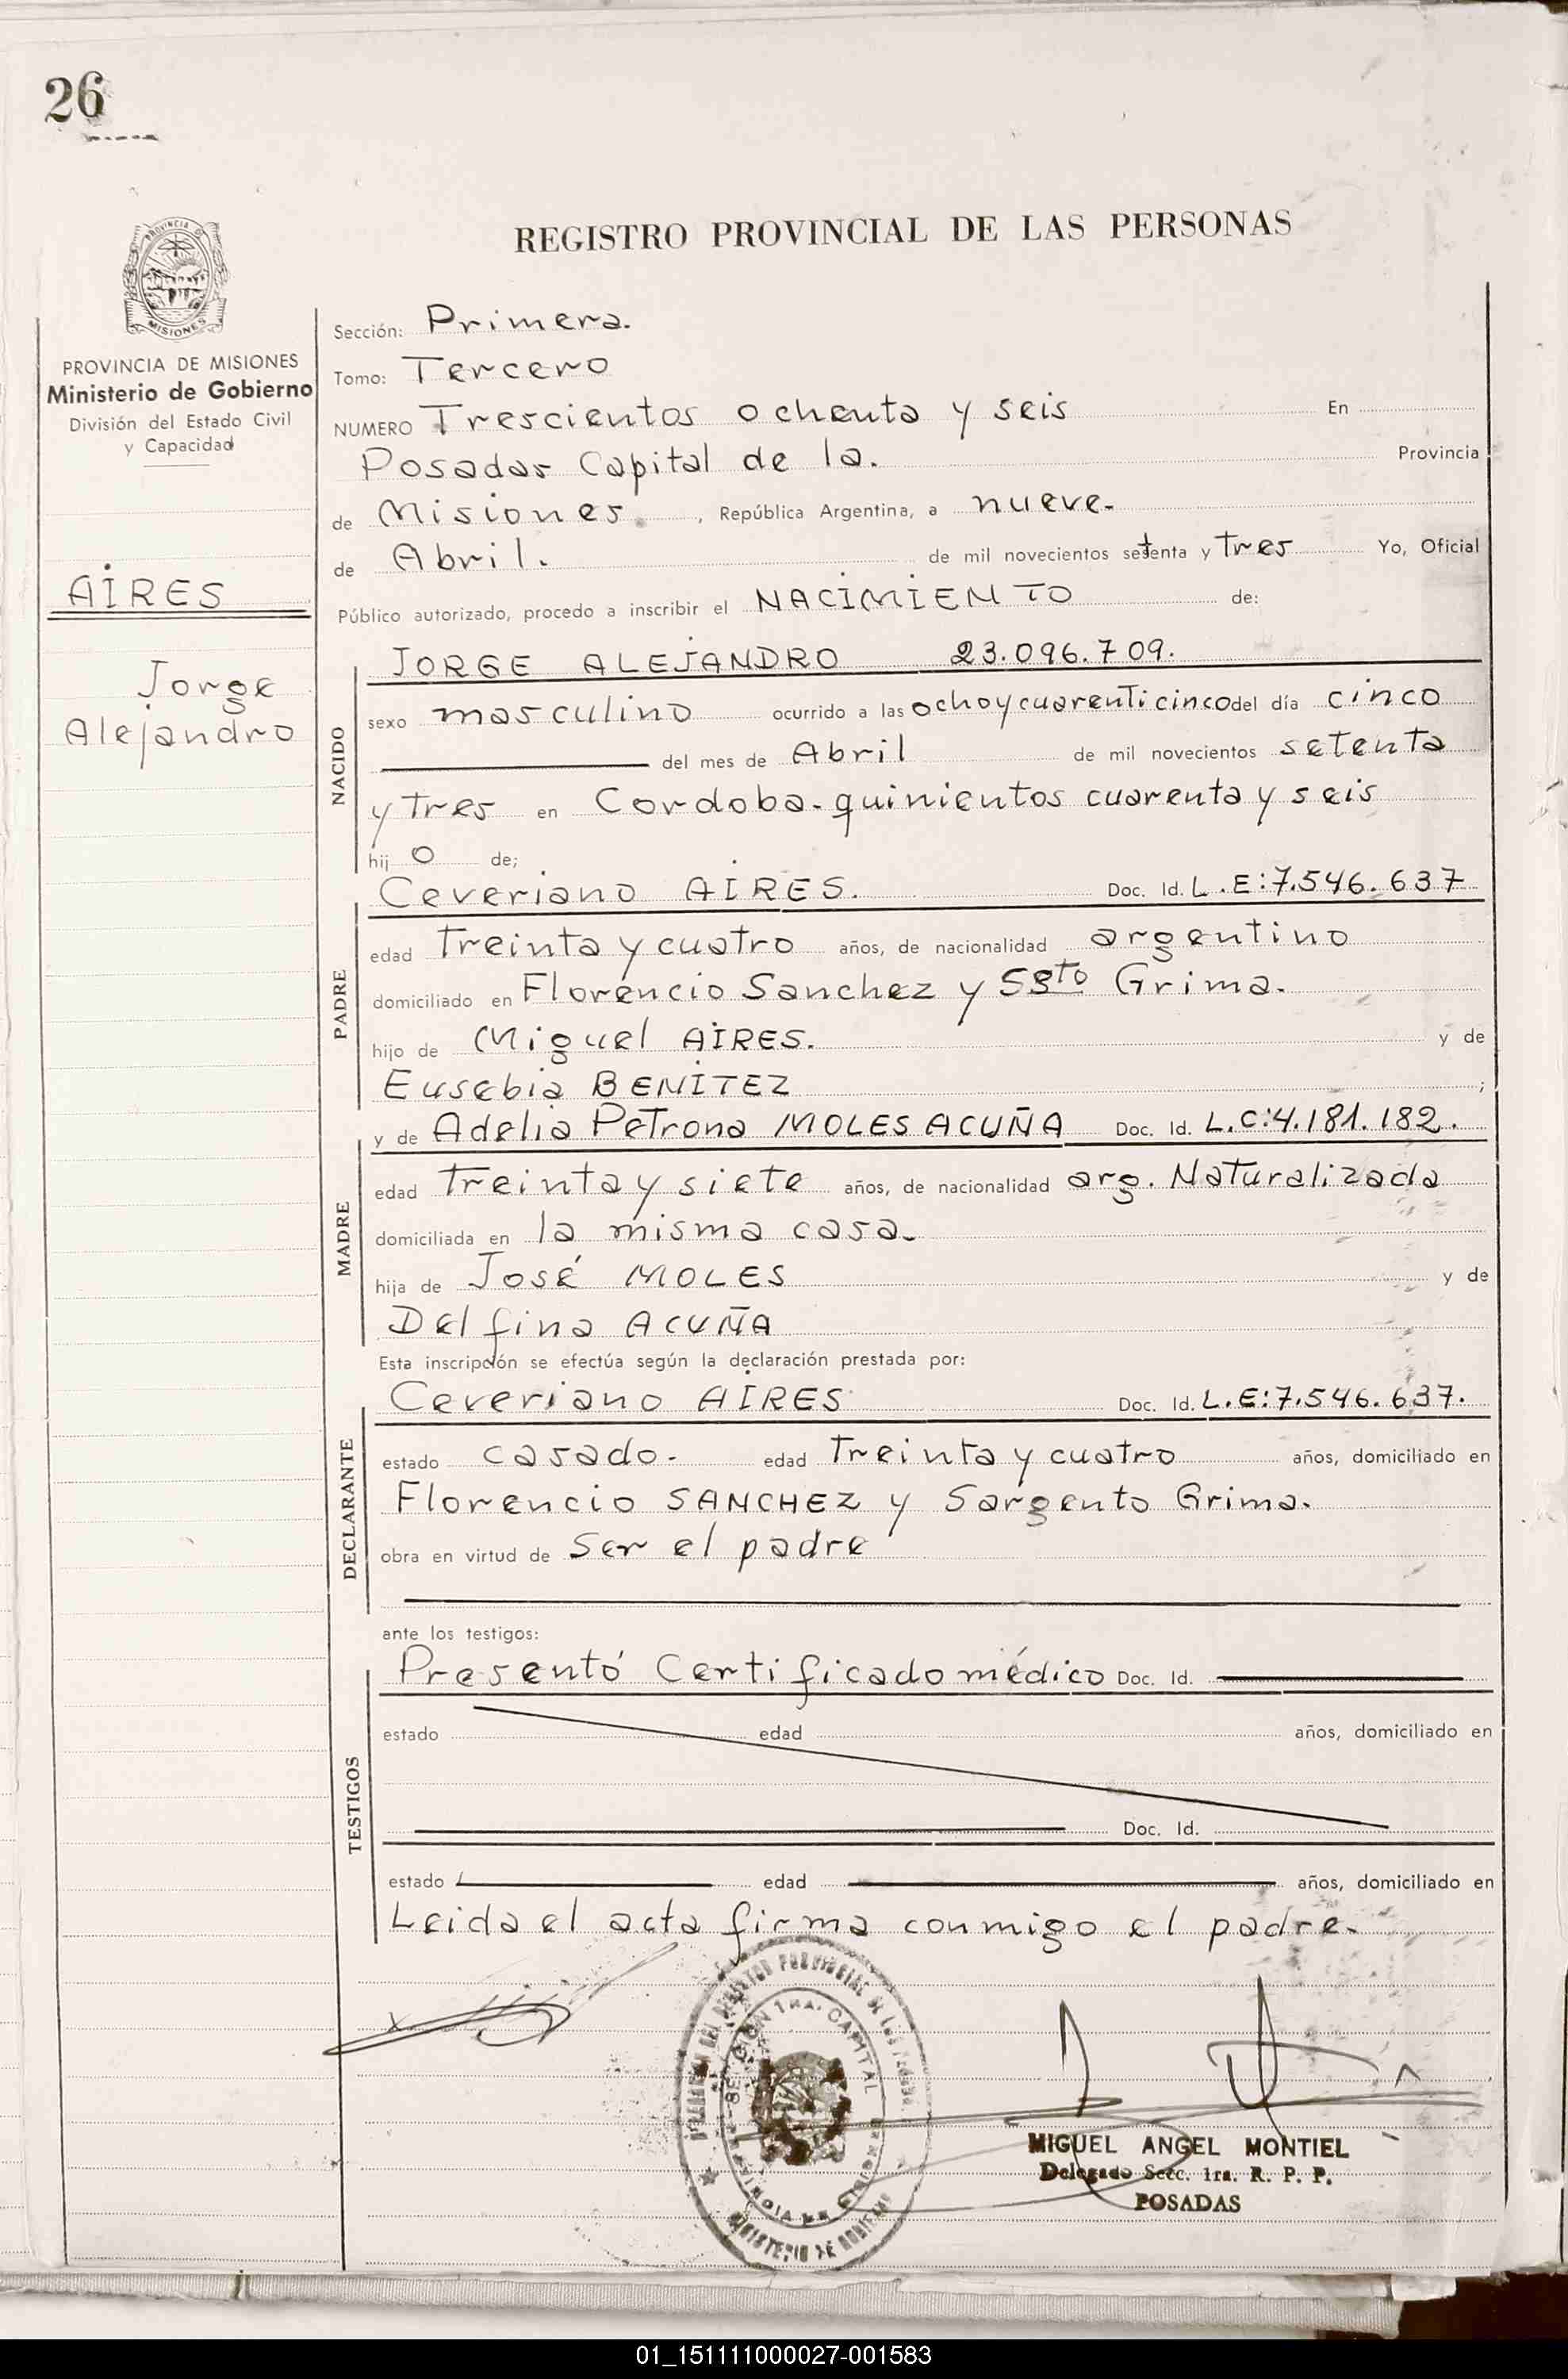 26
REGISTRO PROVINCIAL DE LAS PERSONAS
PROVINCIA DE MISIONES
Ministerio de Gobierno
División del Estado Civil
y Capacidad
AIRES
Jorge
Alejandro
Sección: Primera.
Tomo: Tercero
NUMERO Trescientos ochenta y seis En
Posadas Capital de la. Provincia
de Misiones. , República Argentina, a nueve.
de Abril. de mil novecientos setenta y Tres Yo, Oficial
Público autorizado, procedo a inscribir el NACIMIENTO de:
NACIDO
JORGE ALEJANDRO 23.096.709.
sexo masculino ocurrido a las ocho y cuarenti cinco del día cinco
del mes de Abril de mil novecientos setenta
y tres en Cordoba. quinientos cuarenta y seis
hij o de;
PADRE
Ceveriano AIRES. Doc. Id. L.E:7.546.637
edad Treinta y cuatro años, de nacionalidad argentino
domiciliado en Florencio Sanchez y Sgto Grima.
hijo de Miguel AIRES. y de
Eusebia BENITEZ ;
MADRE
y de Adelia Petrona MOLES ACUÑA Doc. Id. L.C:4.181.182.
edad Treinta y siete años, de nacionalidad arg. Naturalizada
domiciliada en la misma casa.
hija de José MOLES y de
Delfina ACUÑA
Esta inscripción se efectúa según la declaración prestada por:
DECLARANTE
Ceveriano AIRES Doc. Id. L.E:7.546.637.
estado casado. edad Treinta y cuatro años, domiciliado en
Florencio SANCHEZ y Sargento Grima.
obra en virtud de Ser el padre
ante los testigos:
TESTIGOS
Presentó Certificado médico Doc. Id.
estado edad años, domiciliado en
Doc. Id.
estado edad años, domiciliado en
Leida el acta firma conmigo el padre.
MIGUEL ANGEL MONTIEL
Delegado Secc. 1ra. R. P. P.
POSADAS
01_151111000027-001583